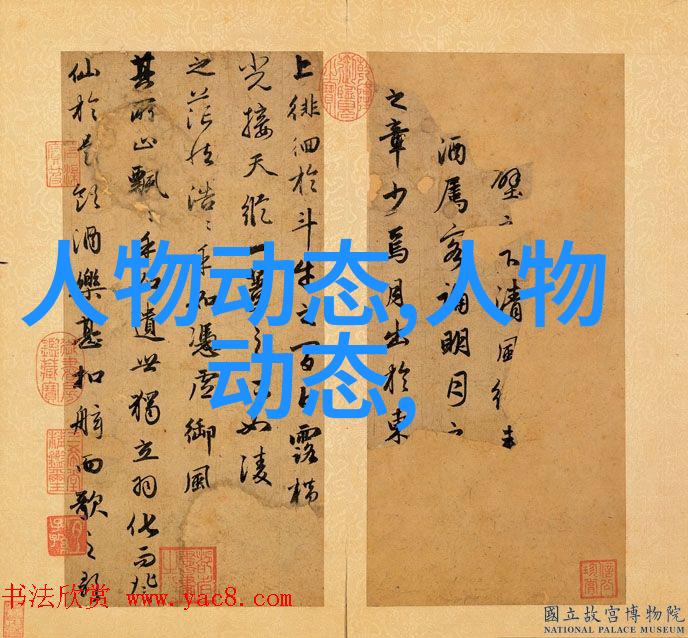 壁之下清風徐来
酒属客誦明月之
之章少焉月出於東
上徘徊於斗牛之間白露横
光接天縱一葦之所如陵
之茫然浩浩乎如憑虚御風
其所止飄飄乎如遺世獨立羽化而登
仙於是飲酒樂甚扣舷而歌之歌
人物动态,人物
动态,
书法欣赏 www.yac8.com
國立故宮博物院
NATIONAL PALACE MUSEUM